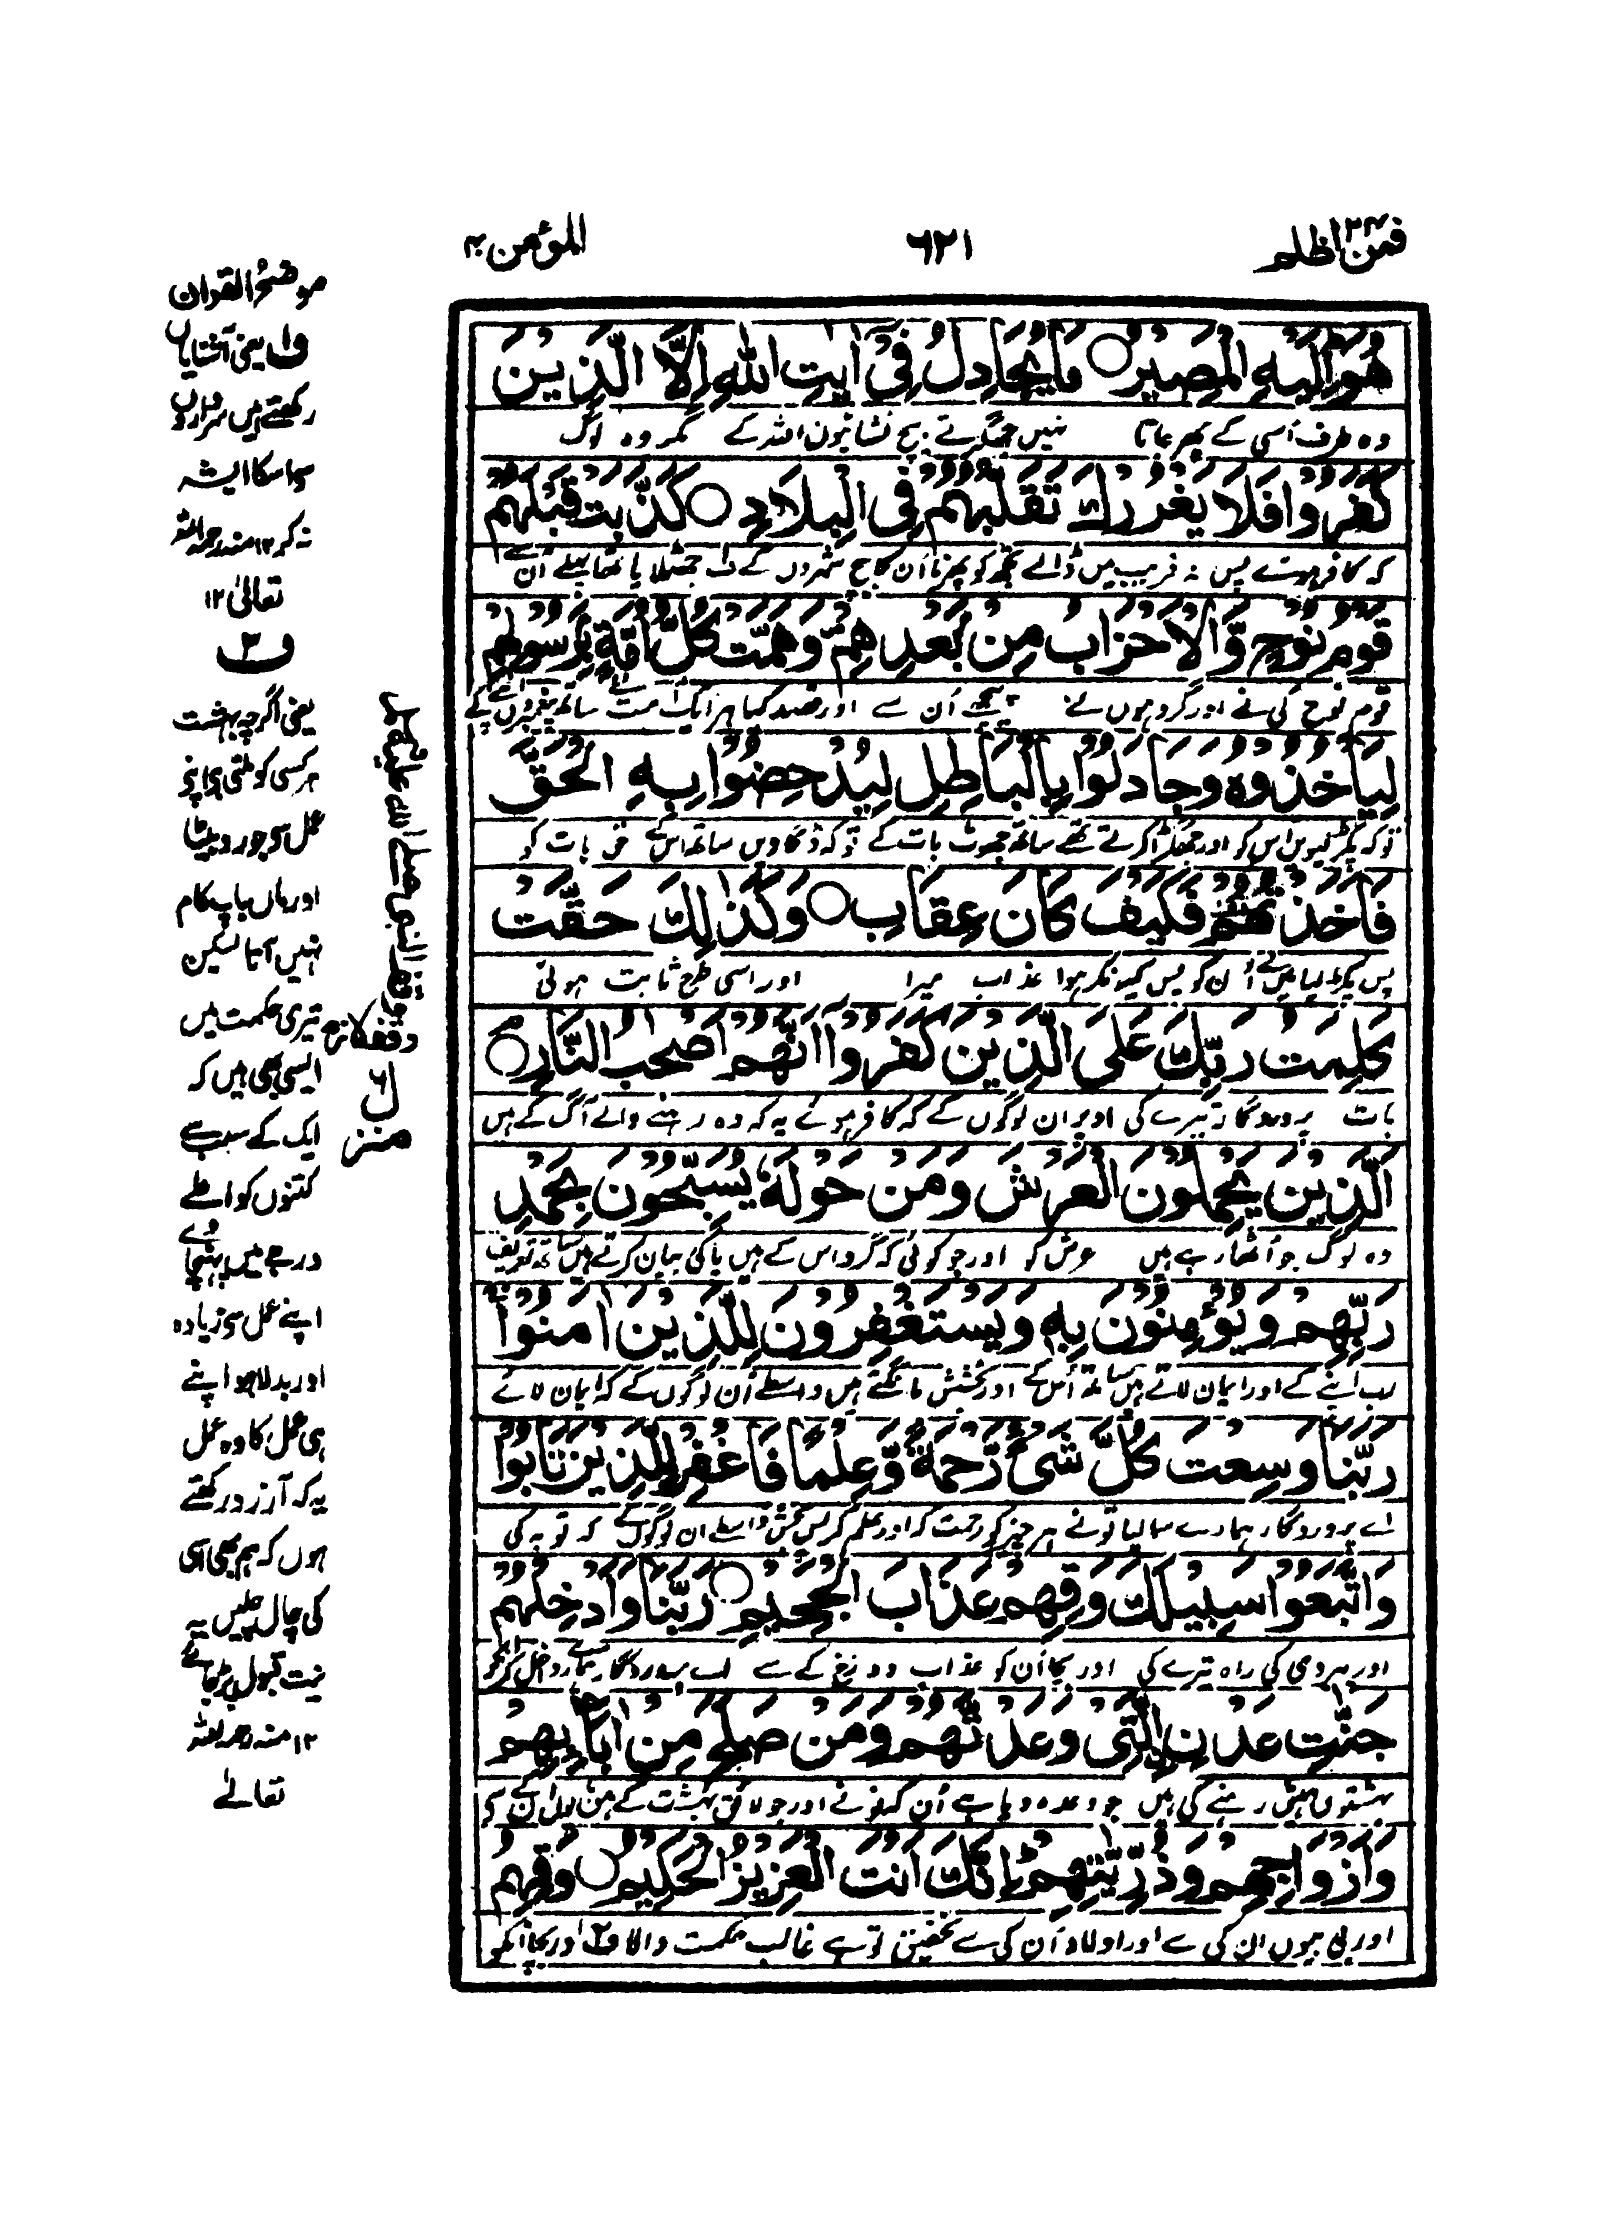 فمن اظلم ٢٤
٦٢١
المؤمن ٤٠
هُوَ اِلَيْهِ الْمَصِيْرُ ○ مَا يُجَادِلُ فِيْٓ اٰيٰتِ اللّٰهِ اِلَّا الَّذِيْنَ
وہ طرف اُسی کے پھر جانا نہیں جھگڑتے بیچ نشانیوں اللہ کے مگر وہ لوگ
كَفَرُوْا فَلَا يَغْرُرْكَ تَقَلُّبُهُمْ فِي الْبِلَادِ ○ كَذَّبَتْ قَبْلَهُمْ
کہ کافر ہوئے پس نہ فریب میں ڈالے تجھ کو پھرنا اُن کا بیچ شہروں کے ف۱ جھٹلایا تھا پہلے اُن سے
قَوْمُ نُوْحٍ وَّالْاَحْزَابُ مِنْۢ بَعْدِهِمْ وَهَمَّتْ كُلُّ اُمَّةٍۢ بِرَسُوْلِهِمْ
قوم نوح کی نے اور گروہوں نے پیچھے اُن سے اور قصد کیا ہر ایک امت نے ساتھ پیغمبروں اپنے کے
لِيَاْخُذُوْهُ وَجَادَلُوْا بِالْبَاطِلِ لِيُدْحِضُوْا بِهِ الْحَقَّ
توکہ پکڑ لیویں اس کو اور جھگڑا کرتے تھے ساتھ جھوٹ بات کے توکہ ڈگاویں ساتھ اس کے حق بات کو
فَاَخَذْتُهُمْ فَكَيْفَ كَانَ عِقَابِ ○ وَكَذٰلِكَ حَقَّتْ
پس پکڑ لیا میں نے اُن کو پس کیونکر ہوا عذاب میرا اور اسی طرح ثابت ہوئی
كَلِمَتُ رَبِّكَ عَلَى الَّذِيْنَ كَفَرُوْٓا اَنَّهُمْ اَصْحٰبُ النَّارِ ○
بات پروردگار تیرے کی اوپر ان لوگوں کے کہ کافر ہوئے یہ کہ وہ رہنے والے آگ کے ہیں
اَلَّذِيْنَ يَحْمِلُوْنَ الْعَرْشَ وَمَنْ حَوْلَهٗ يُسَبِّحُوْنَ بِحَمْدِ
وہ لوگ جو اُٹھا رہے ہیں عرش کو اور جو کوئی کہ گرد اس کے ہیں پاکی بیان کرتے ہیں ساتھ تعریف
رَبِّهِمْ وَيُؤْمِنُوْنَ بِهٖ وَيَسْتَغْفِرُوْنَ لِلَّذِيْنَ اٰمَنُوْا
رب اپنے کے اور ایمان لاتے ہیں ساتھ اُس کے اور بخشش مانگتے ہیں واسطے اُن لوگوں کے کہ ایمان لائے
رَبَّنَا وَسِعْتَ كُلَّ شَيْءٍ رَّحْمَةً وَّعِلْمًا فَاغْفِرْ لِلَّذِيْنَ تَابُوْا
اے پروردگار ہمارے سما لیا تو نے ہر چیز کو رحمت کر اور علم کر پس بخش واسطے ان لوگوں کے کہ توبہ کی
وَاتَّبَعُوْا سَبِيْلَكَ وَقِهِمْ عَذَابَ الْجَحِيْمِ ○ رَبَّنَا وَاَدْخِلْهُمْ
اور پیروی کی راہ تیرے کی اور بچا اُن کو عذاب دوزخ کے سے اے پروردگار ہمارے اور داخل کر انکو
جَنّٰتِ عَدْنِ ِۨالَّتِيْ وَعَدْتَّهُمْ وَمَنْ صَلَحَ مِنْ اٰبَآئِهِمْ
بہشتوں ہمیش رہنے کی میں جو وعدہ دیا ہے اُن کو تونے اور جو لائق بہشت کے ہیں
وَاَزْوَاجِهِمْ وَذُرِّيّٰتِهِمْ ؕ اِنَّكَ اَنْتَ الْعَزِيْزُ الْحَكِيْمُ ○ وَقِهِمُ
اور بی بیوں ان کی سے اور اولاد اُن کی سے تحقیق تو ہے غالب حکمت والا ف۲ اور بچا انکو
موضح القران
ف۱ یعنی
رکھتے ہیں
سو اسکا اندیشہ
نہ کر ۱۲ منہ رحمہ اللہ
تعالیٰ ۱۲
ف۲
یعنی اگرچہ بہشت
ہر کسی کو ملتی ہی اپنے
عمل سو جورو بیٹا
اور ماں باپ کام
نہیں آتا لیکن
تیری حکمت میں
ایسی بھی ہیں کہ
ایک کے سبب سے
کتنوں کو اعلےٰ
درجے میں پہنچاوے
اپنے عمل سو زیادہ
اور بدلا ہو اپنے
ہی عمل کا وہ عمل
یہ کہ آرزو رکھتے
ہوں کہ ہم بھی اسی
کی چال چلیں یہ
نیت قبول پڑ جائے
۱۲ منہ رحمہ اللہ
تعالےٰ
وقف النبی صلے اللہ علیہ وسلم
وقف لازم
منزل ٦